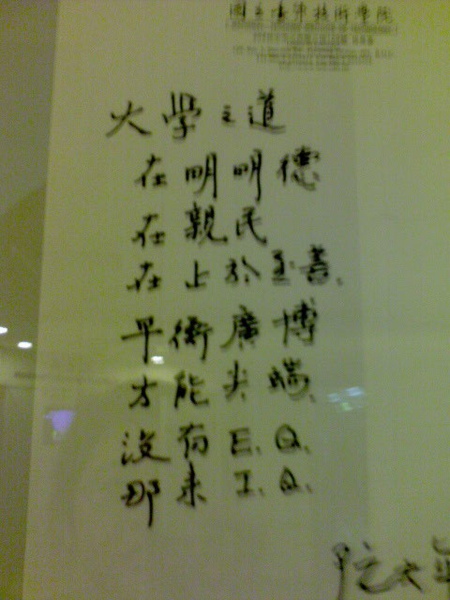 國立臺灣技術學院
大學之道
在明明德
在親民
在止於至善、
平衡廣博
才能尖端、
沒有E.Q.
那來I.Q.